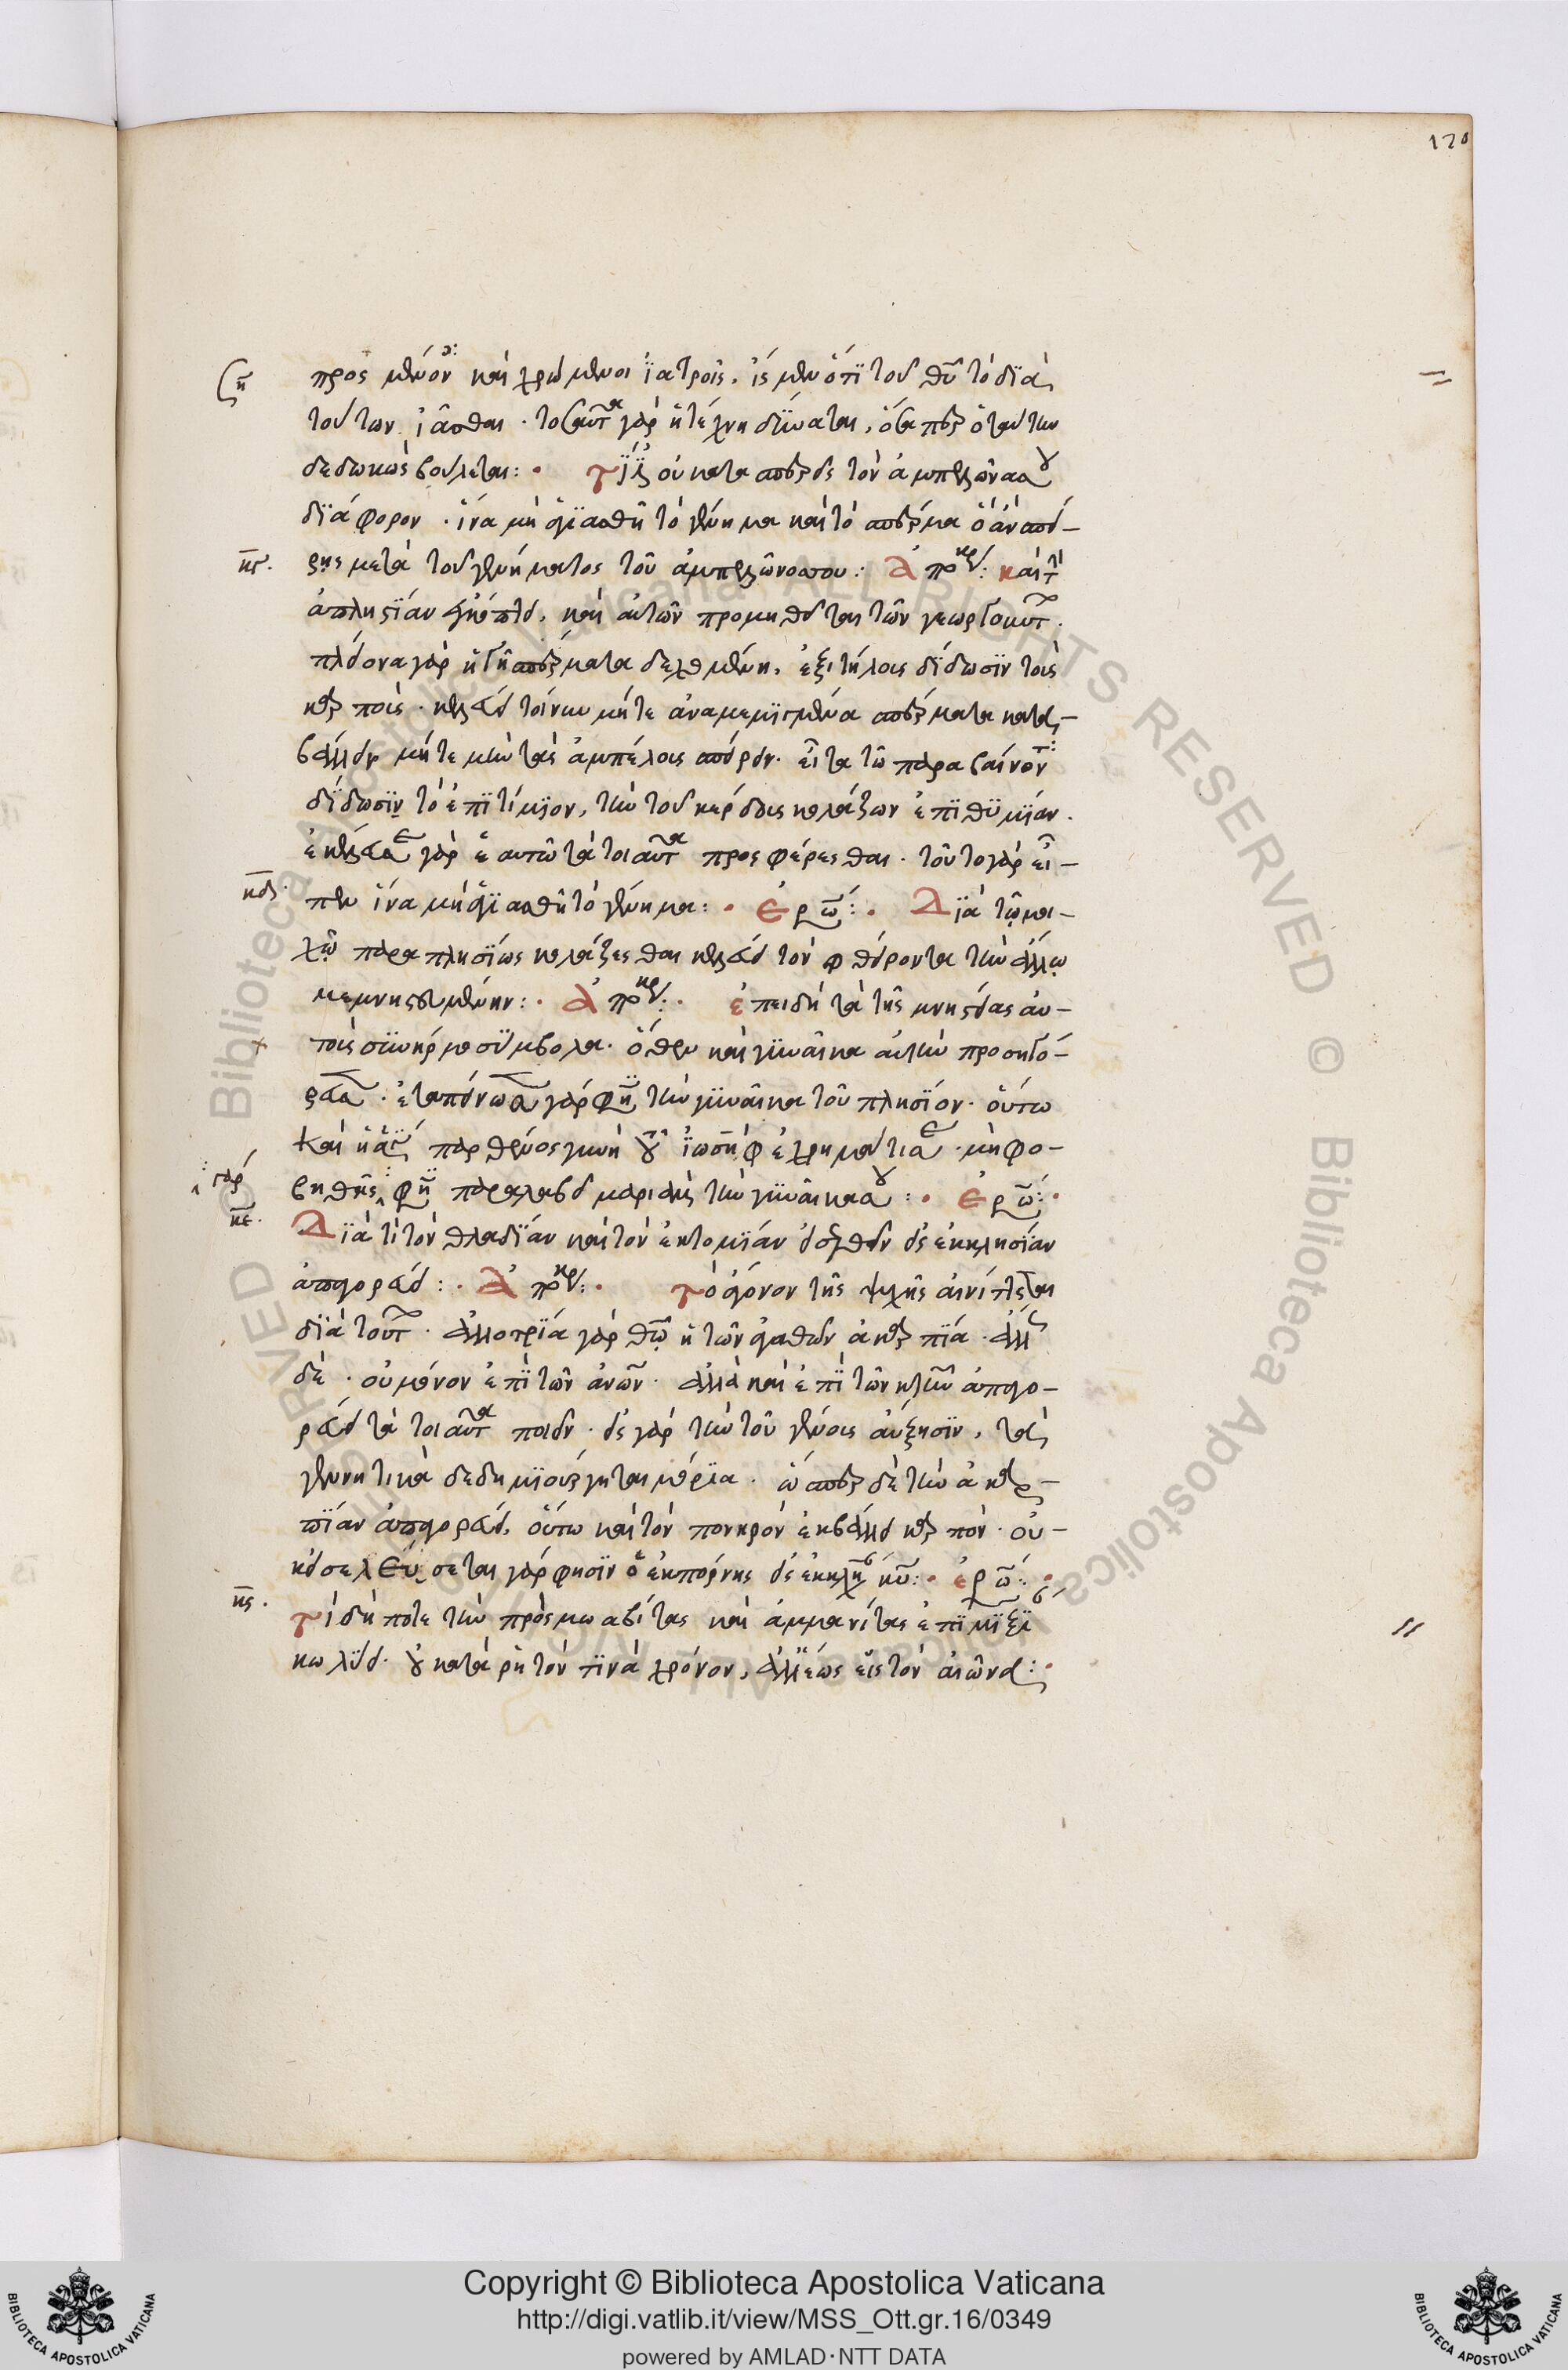 προσμένον καὶ χρώμενοι ἰατροῖς. ἴσμεν ὅτι τοῦ θῦ τὸ διὰ
τούτων ἰᾶσθαι. τοσαῦτα γὰρ ἡ τέχνη δύναται, ὅσαπερ ὁ ταύτην
δεδωκὼς βούλεται: οὐ κατασπερεῖς τὸν ἀμπελῶνά σου
διάφορον. ἵνα μὴ ἁγιασθῇ τὸ γένημα καὶ τὸ σπέρμα ὃ ἂν σπεί-
κγ. ρῃς μετὰ τοῦ γενήματος τοῦ ἀμπελῶνός σου: Ἀπόκρ: καὶ τὴν
ἀπληστίαν ἐκκόπτει, καὶ αὐτῶν προμηθεῖται τῶν γεωργούντων.
πλείονα γὰρ ἡ γῆ σπέρματα δεχομένη, ἐξιτήλους δίδωσιν τοὺς
καρπούς. κελεύει τοίνυν μήτε ἀναμεμιγμένα σπέρματα κατα-
βάλλειν μήτε μὴν τὰς ἀμπέλους σπείρειν. εἶτα τῶ παραβαίνοντι
δίδωσιν τὸ ἐπιτίμιον, τὴν τοῦ κέρδους κολάζων ἐπιθυμίαν.
ἐκέλευσε γὰρ ἑαυτῶ τὰ τοιαῦτα προσφέρεσθαι. τοῦτο γὰρ εἶ-
κδ. πεν ἵνα μὴ ἁγιασθῇ τὸ γένημα: Ἐρώ: Διὰ τί τῶ μοι-
χῶ παραπλησίως κολάζεσθαι κελεύει τὸν φθείροντα τὴν ἄλλω
μεμνηστευμένην: Ἀπόκρ: ἐπειδὴ τὰ τῆς μνηστείας αὐ-
τοῖς συνήρμοσε σύμβολα. ὅθεν καὶ γυναῖκα αὐτὴν προσηγό-
ρευσε. ἐταπείνωσε γὰρ φησὶ τὴν γυναῖκα τοῦ πλησίον. οὕτω
καὶ ἡ ἁγία παρθένος γυνὴ τοῦ ἰωσὴφ ἐχρημάτισε. μὴ φο-
γάρ βηθῇς φησὶ παραλαβεῖν μαριὰμ τὴν γυναῖκά σου: Ἐρώ:
κε. Διατί τὸν θλαδίαν καὶ τὸν ἐκτομίαν εἰσελθεῖν εἰς ἐκκλησίαν
ἀπαγορεύει: Ἀπόκρ: Τὸ ἄγονον τῆς ψυχῆς αἰνίττεται
διὰ τούτων. ἀλλοτρία γὰρ θῶ ἡ τῶν ἀγαθῶν ἀκαρπία. ἄλλως
δὲ. οὐ μόνον ἐπὶ τῶν ἀνῶν. ἀλλὰ καὶ ἐπὶ τῶν κτηνῶν ἀπαγο-
ρεύει τὰ τοιαῦτα ποιεῖν. εἰς γὰρ τὴν τοῦ γένους αὔξησιν, τὰ
γεννητικὰ δεδημιούργηται μόρια. ὥσπερ δὲ τὴν ἀκαρ-
πίαν ἀπαγορεύει, οὕτω καὶ τὸν πονηρὸν ἐκβάλλει καρπόν. οὐ-
κ εἰσελεύσεται γάρ φησιν ὁ ἐκ πόρνης εἰς ἐκκλησίαν κῦ: ἐρώ:
κς. Τί δήποτε τὴν πρὸς μωαβίτας καὶ ἀμμανίτας ἐπιμιξίαν
κωλύει. οὐ κατὰ ῥητόν τινα χρόνον, ἀλλ' ἕως εἰς τὸν αἰῶνα:
Copyright © Biblioteca Apostolica Vaticana
http://digi.vatlib.it/view/MSS_Ott.gr.16/0349
powered by AMLAD·NTT DATA